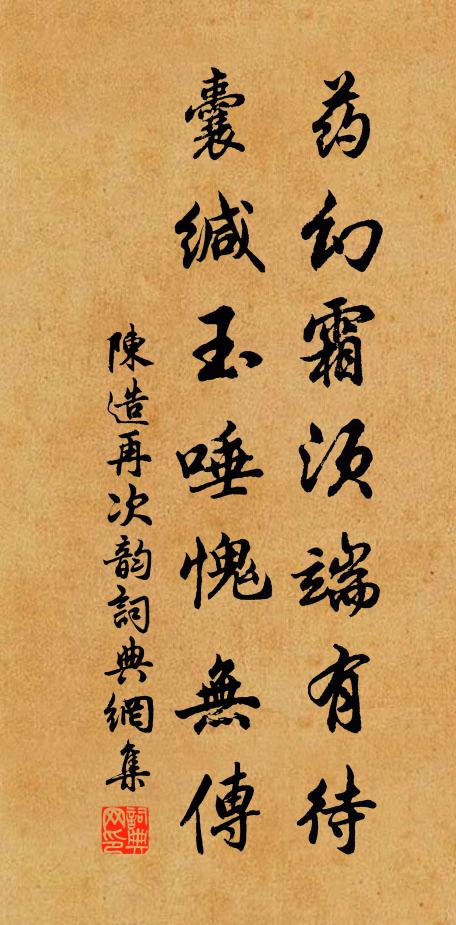 药幻霜须端有待
囊缄玉唾愧無傳
陳造再次韵詞典網集
詞典网印